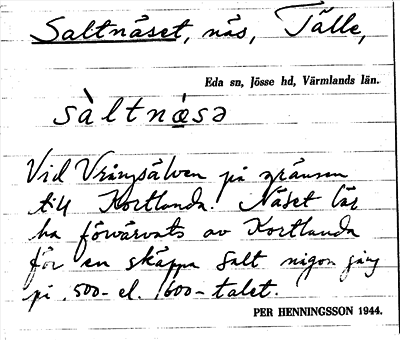 Saltnäset, näs, Tälle,
Eda sn, Jösse hd, Värmlands län.
sàltnæsə
Vid Vrångsälven på gränsen
till Kortlanda. Näset lär
ha förvärvats av Kortlanda
för en skäppa salt någon gång
på 1500- el. 1600-talet.
PER HENNINGSSON 1944.